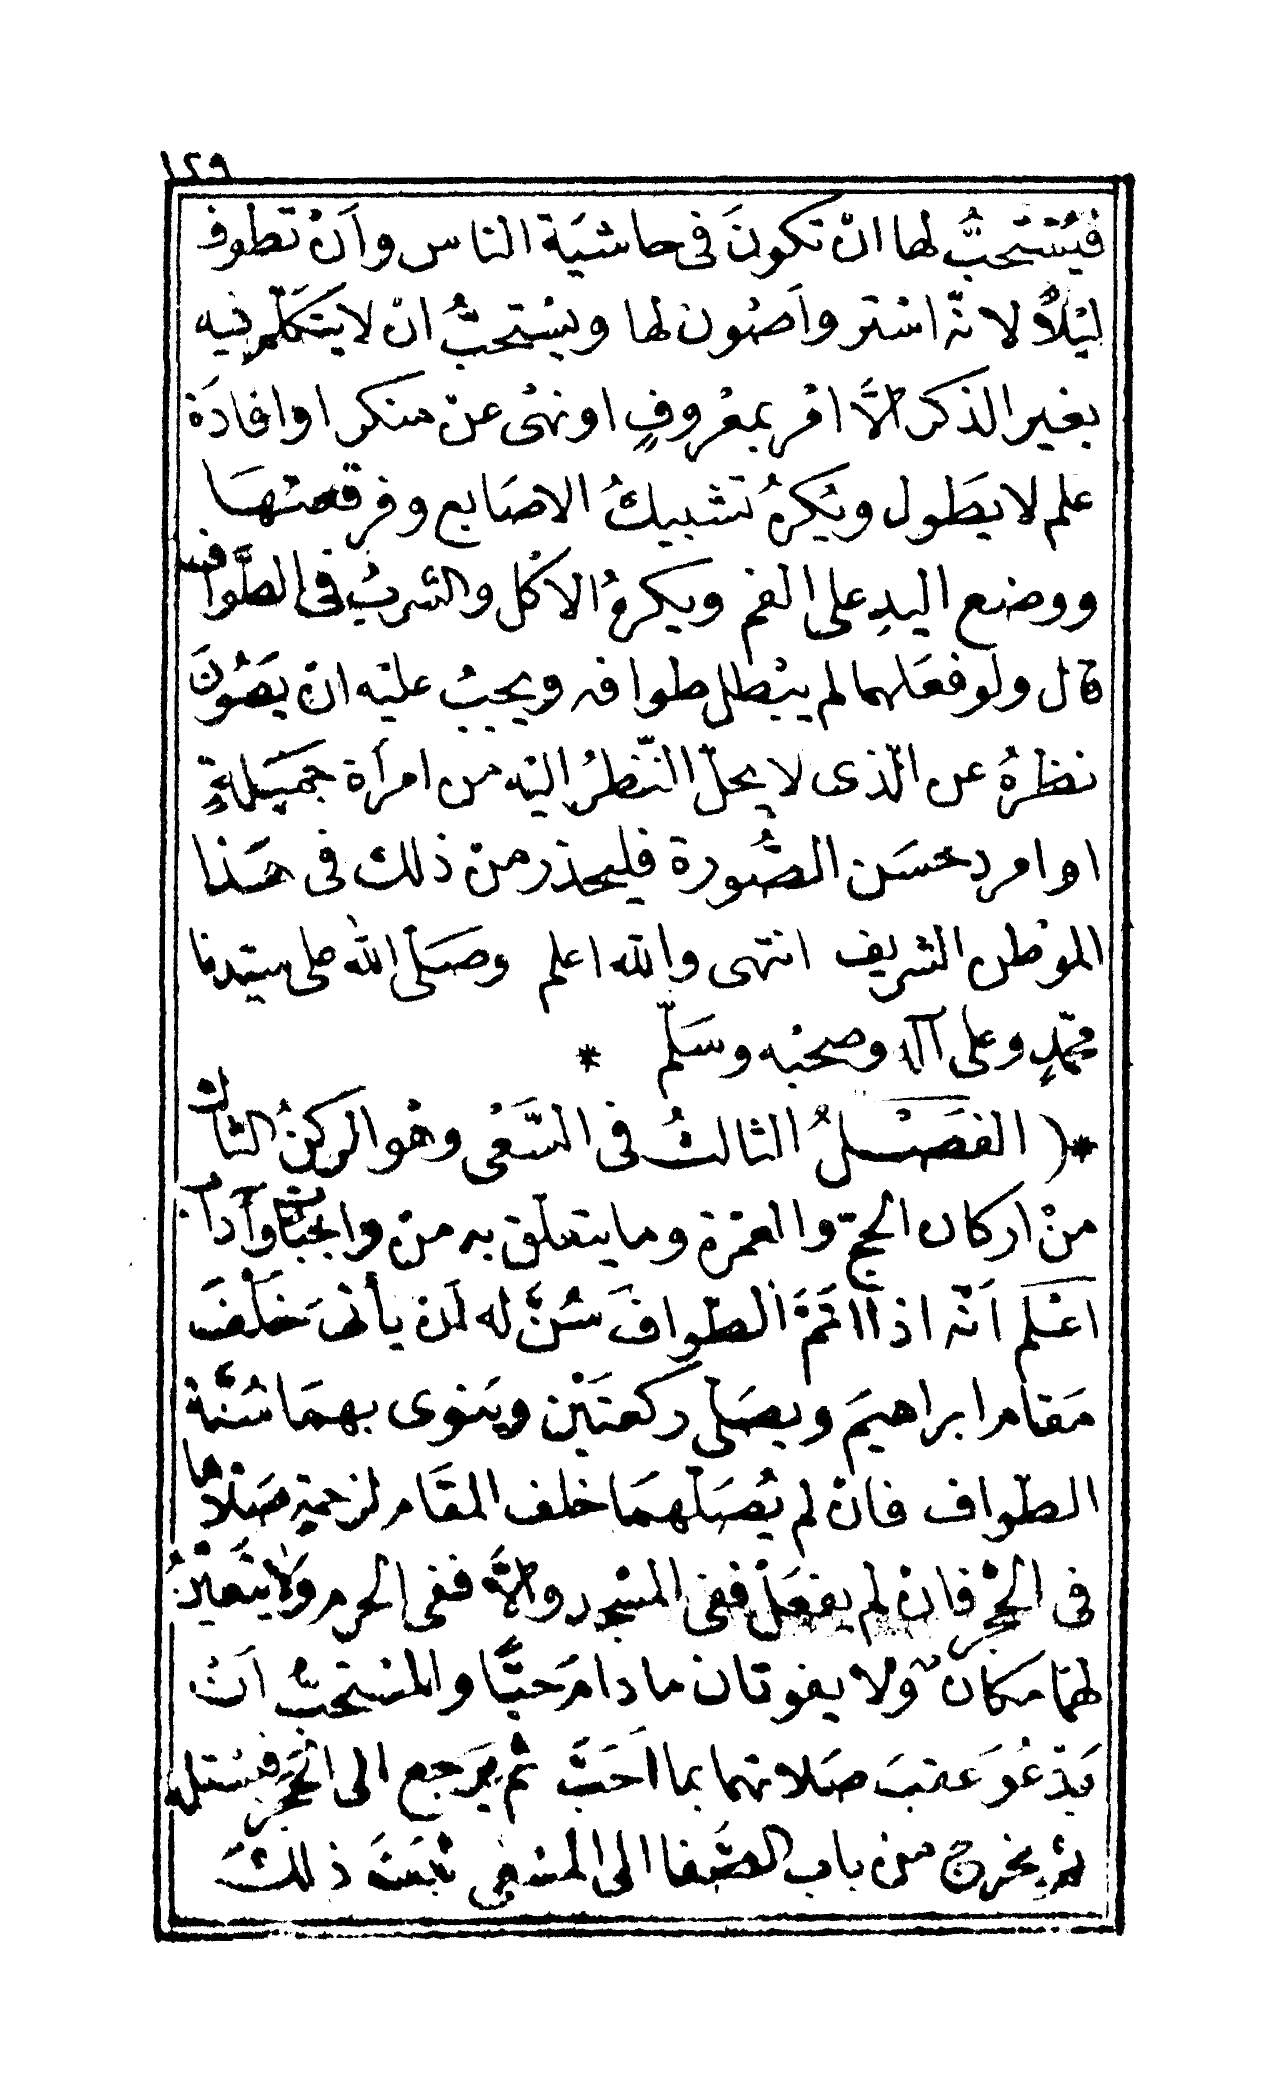 ١٢٩
فيُسْتَحبُّ لها انْ تكونَ فى حاشيَة الناس واَنْ تطوف
ليْلاً لانّه استر واَصْون لها ويسْتحبُّ انْ لا يتكَلّم فيه
بغير الذكر الاَّ امْر بمعْروفٍ او نهْى عنْ منكر او افادَة
علم لا يَطول ويُكرهُ تشبيكُ الاصَابع وفرقعتهَا
ووضع اليدِ على الفم ويكرهُ الاكْل والشربُ فى الطَّواف
قال ولو فعَلهما لم يبْطل طوافه ويجبُ عليْه انْ يَصُونَ
نظرهُ عن الّذى لا يحلّ النّظرُ اليْه من امرأة جَميَلةٍ
او امرد حسَن الصُّورة فليحذر منْ ذلك فى هَذا
الموْطن الشريف انتهى والله اعلم وصَلّى الله على سيّدنا
محمّدٍ وعلى آله وصحْبه وسَلّم *
*( الفصْلُ الثالثُ فى السَّعْى وهْو الركنُ الثالث
منْ اركان الحجّ والعمْرة وما يتعلّق به منْ واجبَات وآداب
اعْلم اَنّه اذا اتمَّ الطّوافَ سُنَّ له اَنْ يأتى خَلْفَ
مَقام ابراهيمَ ويصَلّى ركعتَيْن ويَنوى بهمَا سُنَّة
الطّواف فانْ لم يُصَلّهمَا خلف المقَام لزحمة صَلاّهما
فى الحجْر فانْ لم يفعَلْ ففى المسْجد والاَّ ففى الحرم ولاَ يتَعيّنُ
لهمَا مَكانٌ ولا يفوتان ما دامَ حيًّا والمسْتحبُّ انْ
يَدْعُوَ عقبَ صَلاتهما بما اَحَبَّ ثم يَرجع الى الحَجَر فيَسْتلمه
ثم يخرج من باب الصَّفا الى المسْعى ثبَتَ ذلكَ